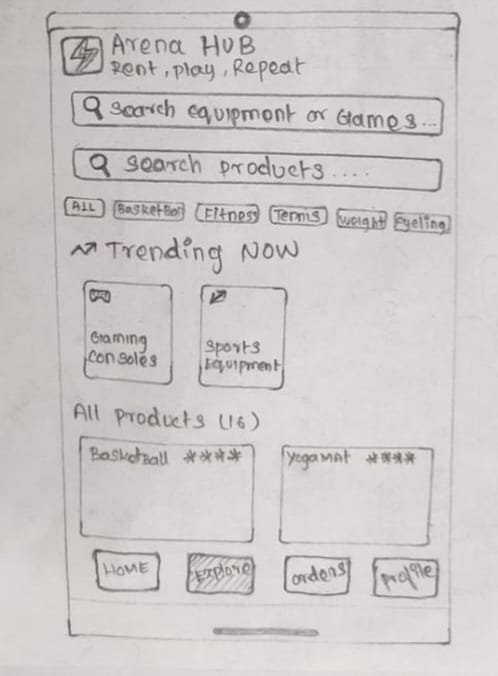 Arena HUB
Rent, play, Repeat
Search equipment or Games...
Search products....
ALL BasketBall Fitness Tennis weight Cycling
Trending NOW
Gaming Consoles
Sports Equipment
All products (16)
Basketball ****
YogaMat ****
HOME Explore orders profile